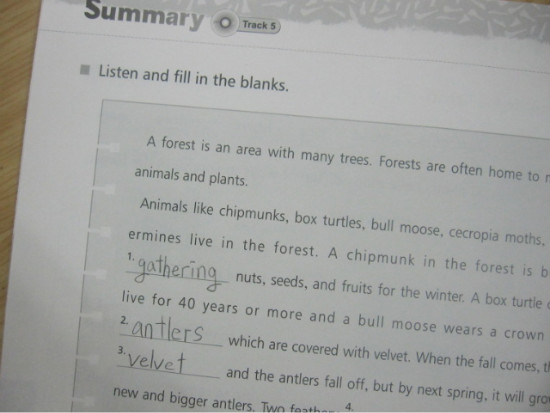 Summary Track 5
Listen and fill in the blanks.
A forest is an area with many trees. Forests are often home to
animals and plants.
Animals like chipmunks, box turtles, bull moose, cecropia moths,
ermines live in the forest. A chipmunk in the forest is
1. gathering nuts, seeds, and fruits for the winter. A box turtle
live for 40 years or more and a bull moose wears a crown
2. antlers which are covered with velvet. When the fall comes,
3. velvet and the antlers fall off, but by next spring, it will
new and bigger antlers. Two 4.